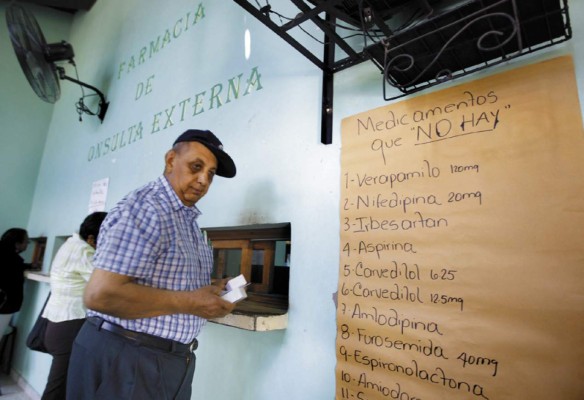 FARMACIA
DE
CONSULTA EXTERNA
Medicamentos
que "NO HAY"
1-Verapamilo 120mg
2-Nifedipina 20mg
3-Irbesartan
4-Aspirina
5 Carvedilol 6.25
6-Carvedilol 125mg
7 Amlodipina
8-Furosemida 40mg
9-Espironolactona
10
11-